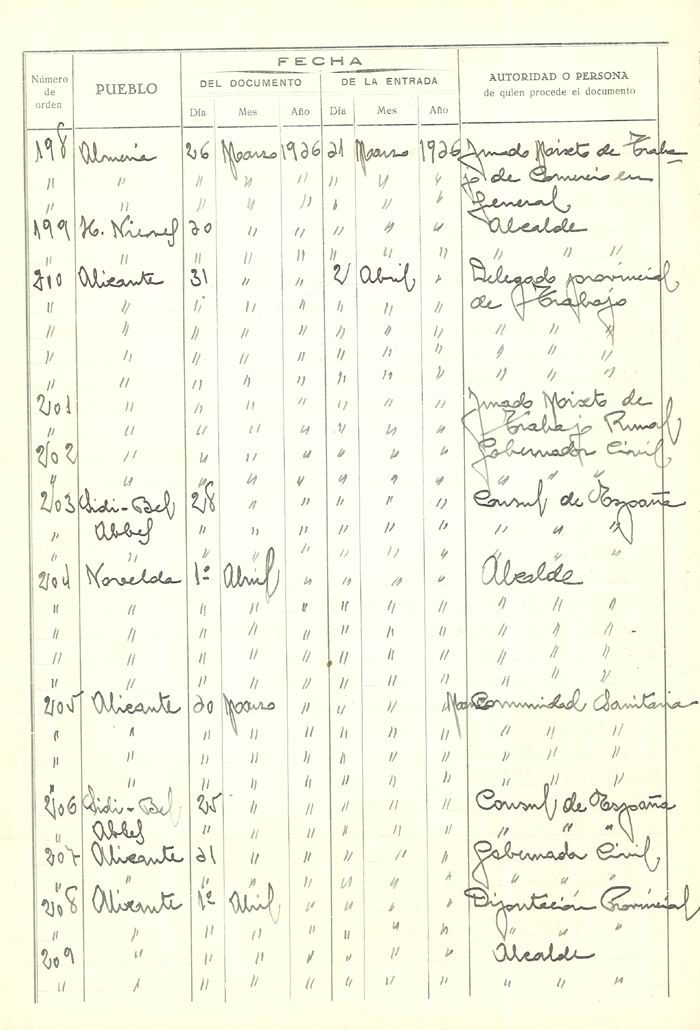 FECHA
Número de orden PUEBLO DEL DOCUMENTO DE LA ENTRADA AUTORIDAD O PERSONA de quien procede el documento
Día Mes Año Día Mes Año
198 Almeria 26 Marzo 1936 31 Marzo 1936 Jurado Mixto de Traba-
" " " " " " " " jo de Comercio en
" " " " " " " " General
199 20 " " " " " Alcalde
" " " " " " " " " " "
210 Alicante 31 " " 2 Abril " Delegado provincial
" " " " " " " " de Trabajo
" " " " " " " " " " "
" " " " " " " " " " "
" " " " " " " " " " "
201 " " " " " " " Jurado Mixto de
" " " " " " " " Trabajo Rural
202 " " " " " " " Gobernador Civil
" " " " " " " " " " "
203 Sidi-Bel 28 " " " " " Consul de España
" Abbes " " " " " " " " "
" " " " " " " " " " "
204 Novelda 1º Abril " " " " Alcalde
" " " " " " " " " " "
" " " " " " " " " " "
" " " " " " " " " " "
" " " " " " " " " " "
205 Alicante 30 Marzo " " " Comunidad Sanitaria
" " " " " " " " " " "
" " " " " " " " " " "
" " " " " " " " " " "
206 Sidi-Bel 25 " " " " " Consul de España
" Abbes " " " " " " " " "
207 Alicante 31 " " " " " Gobernador Civil
" " " " " " " " " " "
208 Alicante 1º Abril " " " " Diputación Provincial
" " " " " " " " " " "
209 " " " " " " " Alcalde
" " " " " " " " " " "